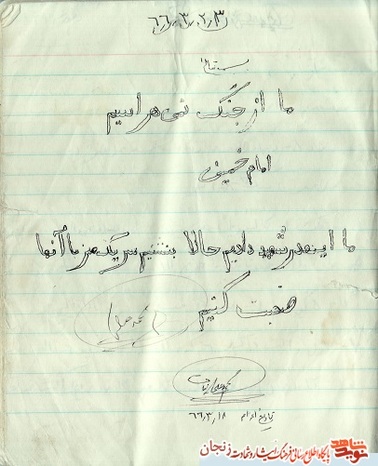 ۶۶٫۳٫۲٫۳
بسمه تعالی
ما از جنگ نمی هراسیم
امام خمینی
ما اینقدر شهید دادیم حالا بنشینیم سر یک میز با آنها
صحبت کنیم
تاریخ اعزام
۶۶٫۳٫۱۸
نوید شاهد
پایگاه اطلاع رسانی فرهنگ ایثار و شهادت زنجان